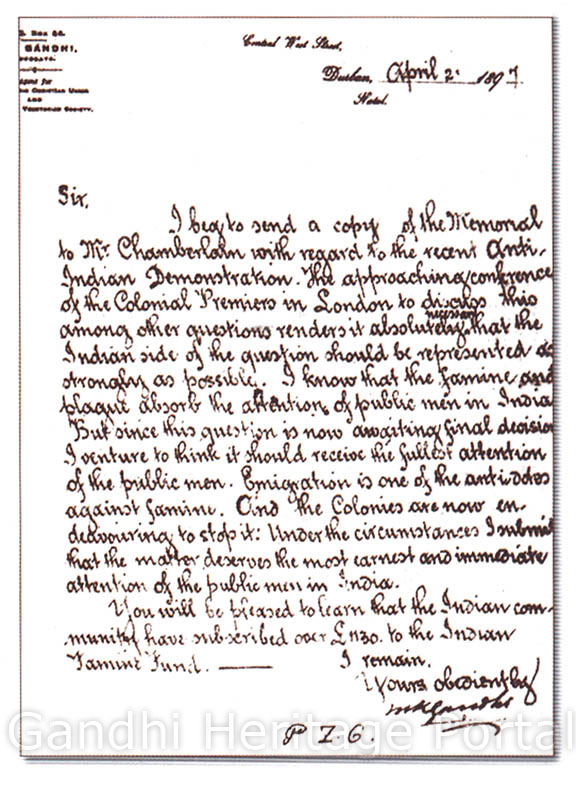 . Box 66.
GANDHI,
Agent for
Christian Union
AND
Vegetarian Society.
Central West Street,
Durban, April 2. 1897
Natal.
Sir,
I beg to send a copy of the Memorial
to Mr Chamberlain with regard to the recent Anti-
Indian Demonstration. The approaching conference
of the Colonial Premiers in London to discuss this
necessary
among other questions renders it absolutely that the
Indian side of the question should be represented as
strongly as possible. I know that the famine and
plague absorb the attention of public men in India
But since this question is now awaiting final decision
I venture to think it should receive the fullest attention
of the public men. Emigration is one of the antidotes
against famine. And the Colonies are now en-
deavouring to stop it: Under the circumstances I submit
that the matter deserves the most earnest and immediate
attention of the public men in India.
You will be pleased to learn that the Indian com-
munity have subscribed over £1130. to the Indian
Famine Fund. —— I remain.
Yours obediently
MKGandhi
P T O .
Gandhi Heritage Portal